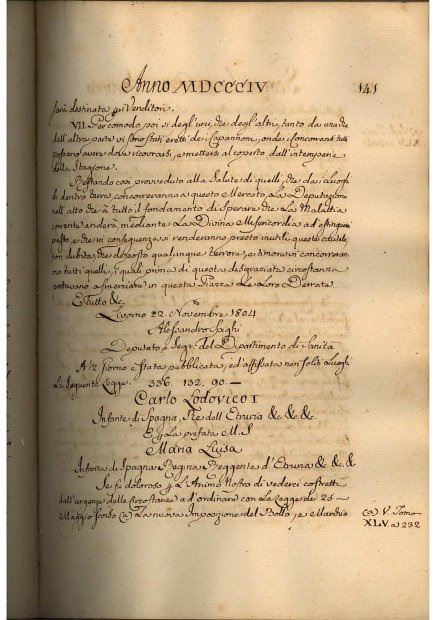 Anno MDCCCIV 141
sarà destinata pi Venditori.
VII. Per comodo poi sì degl'uni, che degl'altri, tanto da una che
dall'altra parte vi sono stati eretti dei Capannoni, onde i Concorrenti tutti
possano avere dove ricovrarsi, e mettersi al coperto dall'intemperie
della Stagione.
Restando così provveduto alla Salute di quelli, che da i Luoghi
di dentro terra, concorreranno a questo Mercato, La Deputazione
nell'atto che à tutto il fondamento di sperare che La Malattia
corrente anderà mediante La Divina Misericordia ad estinguersi
presto, e che in conseguenza si renderanno presto inutili queste cautele
non dubita, che deposto qualunque terrore, e timore vi concorreran-
no tutti quelli, i quali prima di questa disgraziata circostanza
portavano a smerciare in questa Piazza Le Loro Derrate.
E tutto &c.
Livorno 22. Novembre 1804
Alessandro
Deputato e Segr. del Dipartimento di Sanità
A 12 giorno è stata pubblicata, ed affissata nei soliti Luoghi
La Seguente Legge. 336. 132. 90.—
Carlo Lodovico I
Infante di Spagna, Re dell Etruria &c. &c. &c.
E p La prefata M. S.
Maria Luisa
Infanta di Spagna Regina Reggente d'Etruria &c. &c. &c.
Se fù doloroso p L'Animo Nostro di vederci costretti
dall'urgenza delle circostanze ad ordinare con La Legge de' 25-
Maggio scorso (a) La nuova Imposizione del Bollo, e
(a) V. Tomo
XLV. a 232